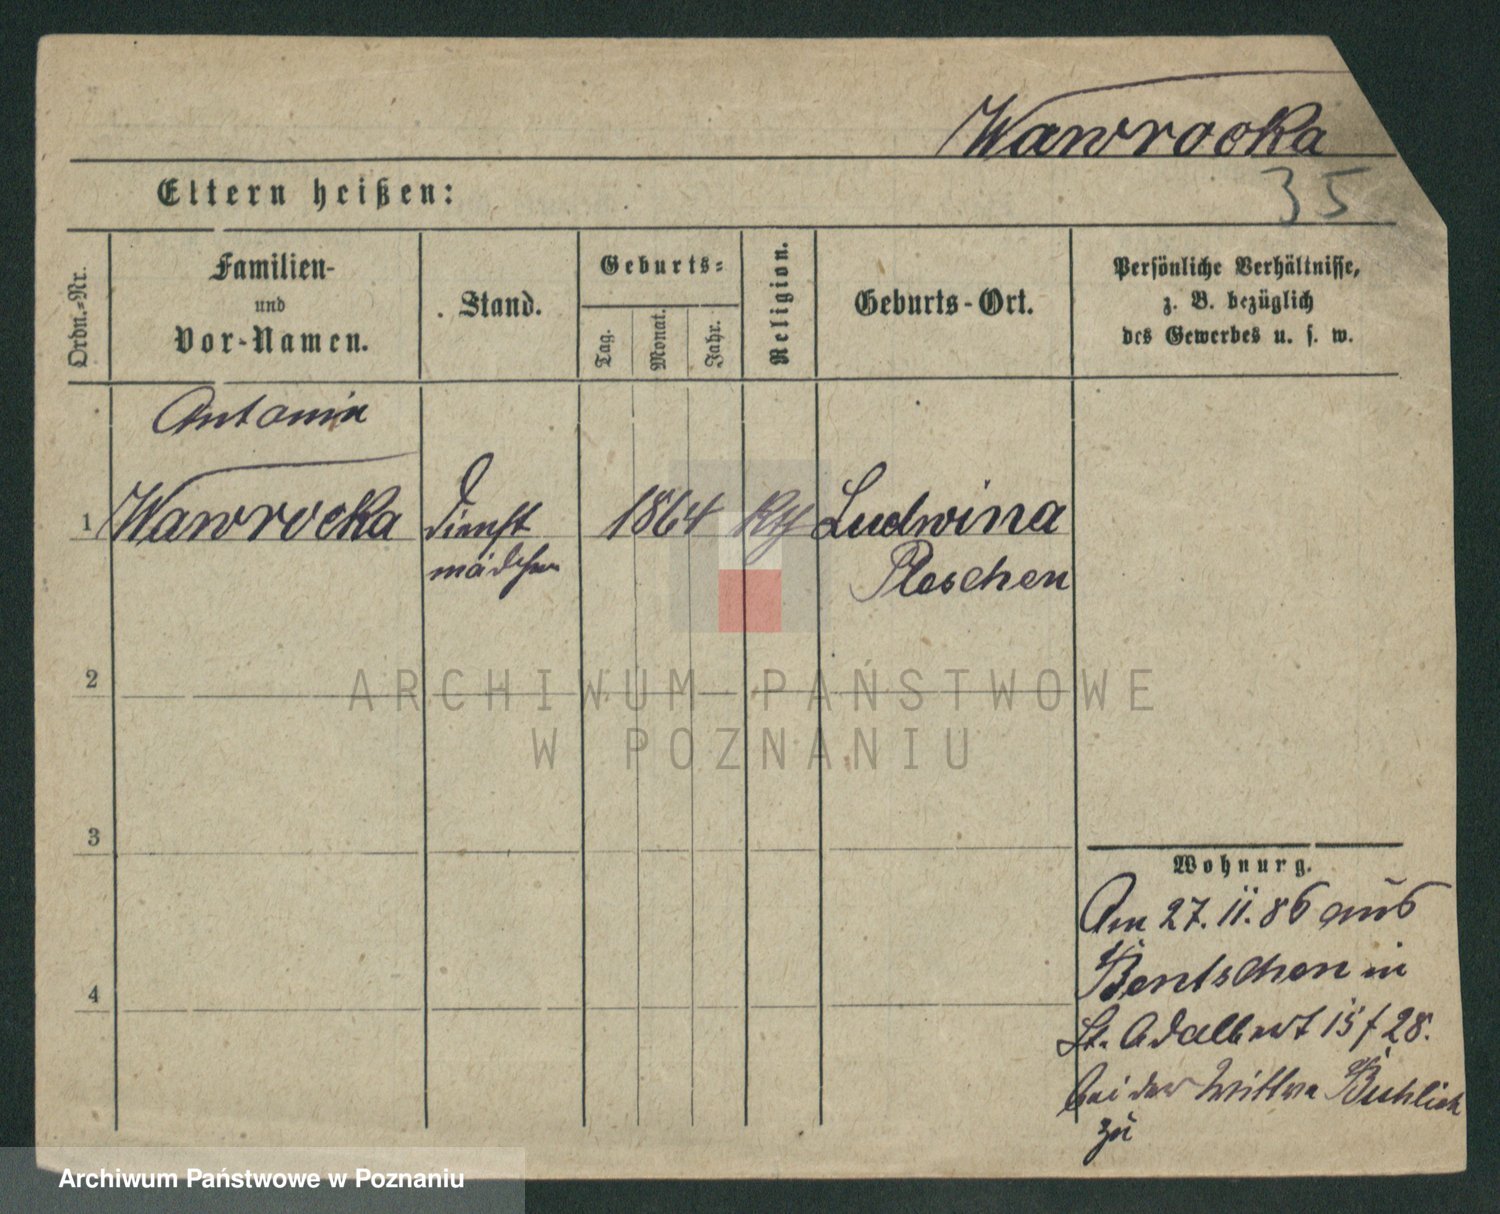 Wawrocka
35
Eltern heißen:
Ordn.-Nr.
Familien-
und
Vor-Namen.
Stand.
Geburts-
Tag.
Monat.
Jahr.
Religion.
Geburts-Ort.
Persönliche Verhältnisse,
z. B. bezüglich
des Gewerbes u. s. w.
Antonia
1 Wawrocka Dienst 1864 Kth Ludwina
mädchen Pleschen
2
ARCHIWUM PAŃSTWOWE
W POZNANIU
3
Wohnung.
Am 27.11.86 aus
Bentschen in
4
St. Adalbert 15/28.
bei der Wittwe
zu
Archiwum Państwowe w Poznaniu